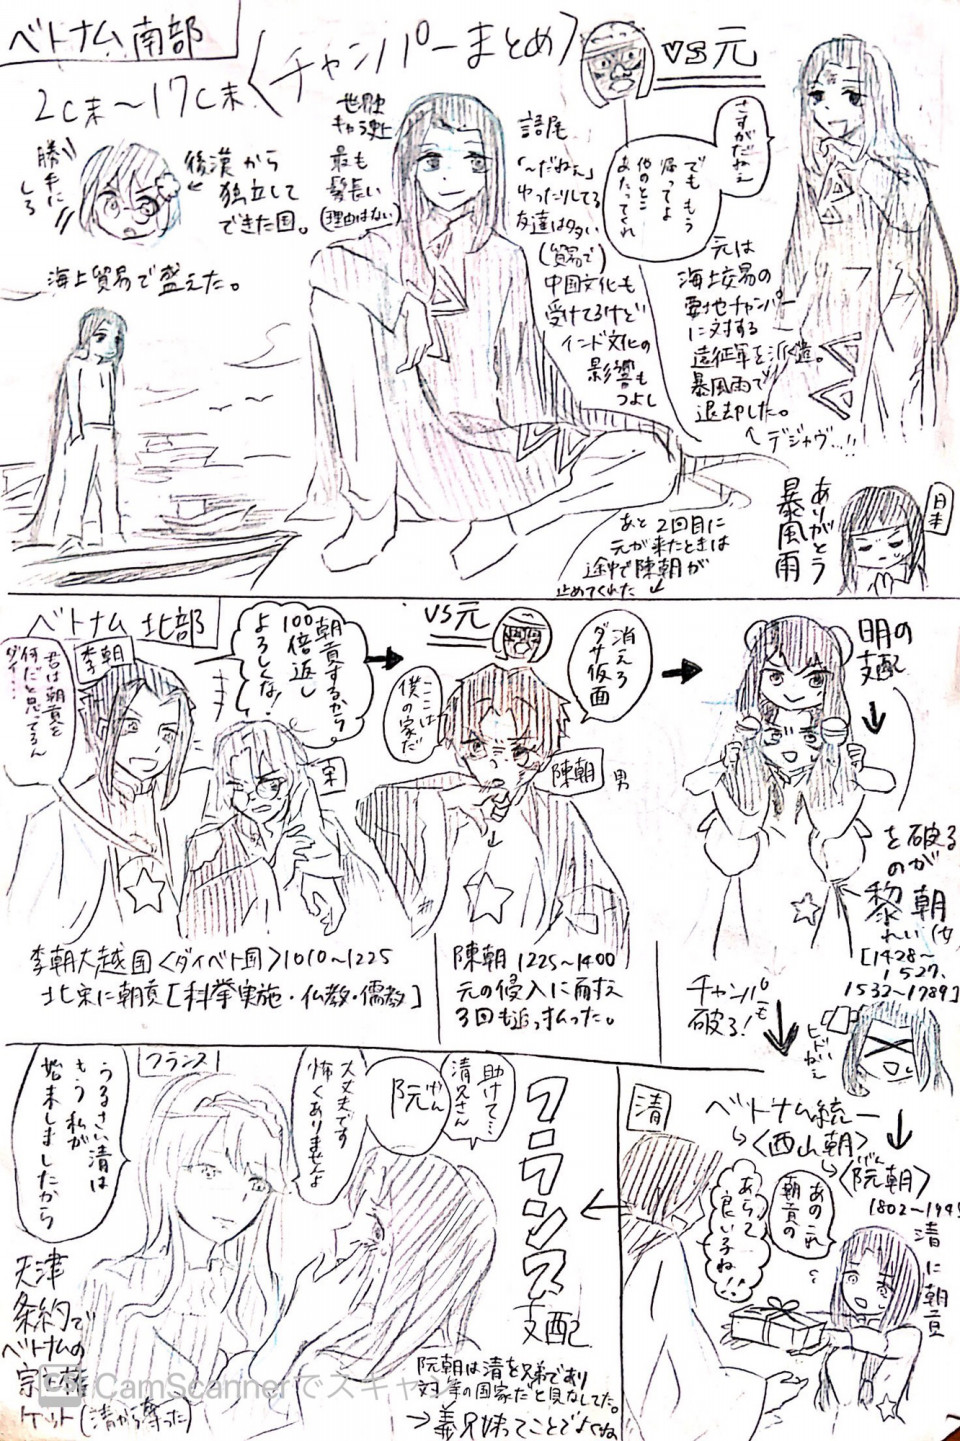 ベトナム南部
〈チャンパーまとめ〉
2C末〜17C末
勝手に
しろ
後漢から
独立して
できた国。
海上貿易で盛えた。
世界史
キャラ史上
最も
髪長い
(理由はない)
語尾
「〜だねぇ」
ゆったりしてる
友達は多い
(貿易で)
中国文化も
受けてるけど
インド文化の
影響も
つよし
VS元
さすがだねぇ
でももう
帰ってよ
他のとこ
あたってくれ
元は
海上交易の
要地チャンパー
に対する
遠征軍を派遣。
暴風雨で
退却した。
デジャヴ…!!
ありがとう
暴風雨
日本
あと2回目に
元が来たときは
途中で陳朝が
止めてくれた
ベトナム北部
李朝
君は朝貢を
何だと思ってるん
ダイ…
朝貢するから
100倍返し
よろしくな!
宋
VS元
ここは
僕の家だ
消えろ
ダサ仮面
陳朝
男
明の
支配
を破る
のが
黎朝
れい(女)
[1428〜
1527,
1532〜1789]
李朝大越国〈ダイベト国〉1010〜1225
北宋に朝貢[科挙実施・仏教・儒教]
陳朝1225〜1400
元の侵入に耐え
3回も追っ払った。
チャンパーも
破る!
ヒドいねぇ
フランス
うるさい清は
もう私が
始末しましたから
大丈夫です
怖くありませんよ
阮
げん
助けて…
清兄さん
フランス支配
清
ベトナム統一
〈西山朝〉
〈阮朝〉
1802〜194
清に朝貢
あのこれ
朝貢の
あらって
良い子ね!!
天津
条約で
ベトナムの
宗主権
ゲット(清から奪った)
阮朝は清を兄弟であり
対等の国家だと見なしてた。
→義兄妹ってことでよくね
CS CamScannerでスキャン